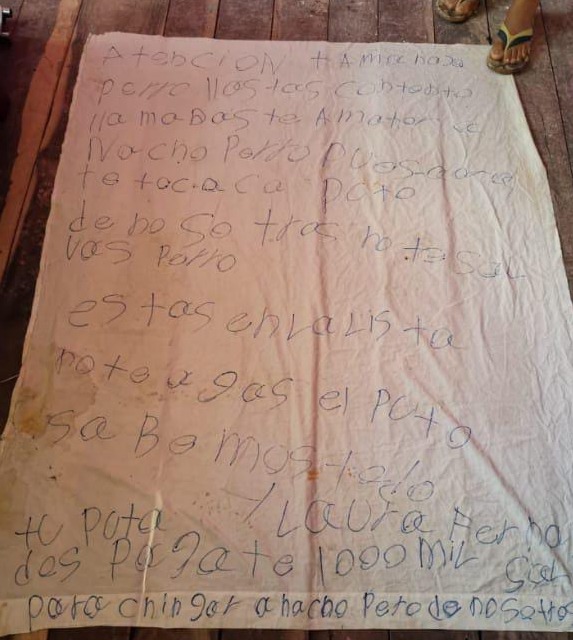 Atencion tamanaza
perro llastas contento
llamabas te Amator
Nacho Perro Pues aora
te toc.a ca Poto
de no so tras no te sal
vas Perro
estas en La Lis ta
no te agas el Poto
sa Be mos todo
tu Puta y Laura Ferna
des Pagate 1000 MiL Sol
para chingar a nacho Pero de nosotro